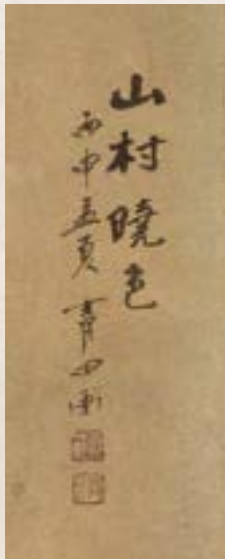 山村曉色
丙申孟夏 青田